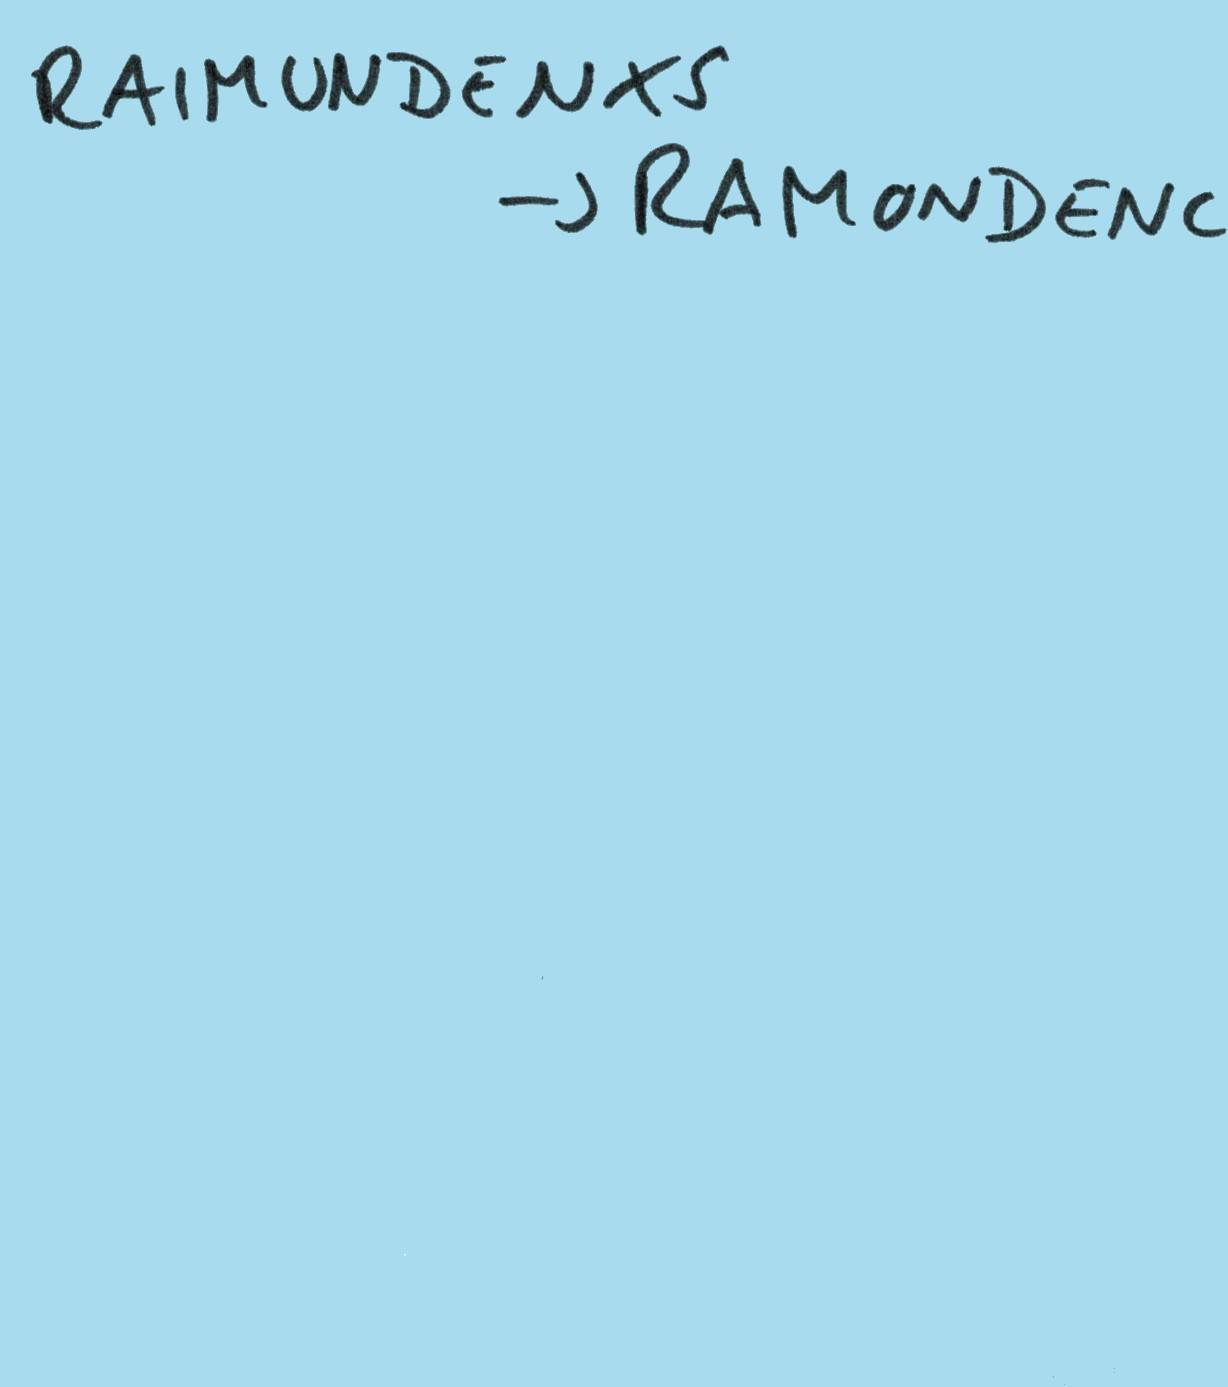 RAIMUNDENXS
→ RAMONDENC